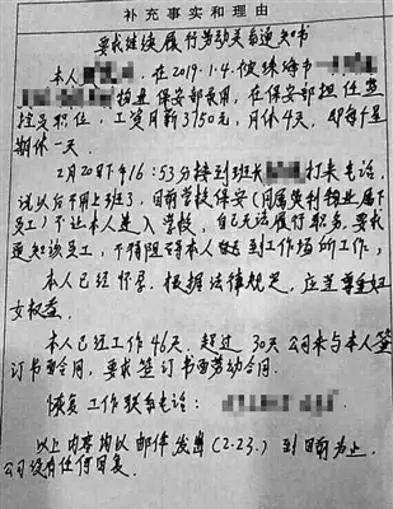 补充事实和理由
要求继续履行劳动关系通知书
本人 , 在2019.1.4.被珠海市
物业保安部录用, 在保安部担任监
控员职位, 工资月薪3750元, 月休4天, 即每个星
期休一天.
2月20日下午16:53分接到班长 打来电话,
说以后不用上班了, 目前学校保安(同属 利物业属下
员工)不让本人进入学校, 自己无法履行职务, 要求
通知该员工, 不得阻碍本人 到工作场所工作,
本人已经怀孕, 根据法律规定, 应当尊重妇
女权益.
本人已经工作46天, 超过30天公司未与本人签
订书面合同, 要求签订书面劳动合同.
恢复工作联系电话:
以上内容均以邮件发出(2.23.)到目前为止,
公司没有任何回复.